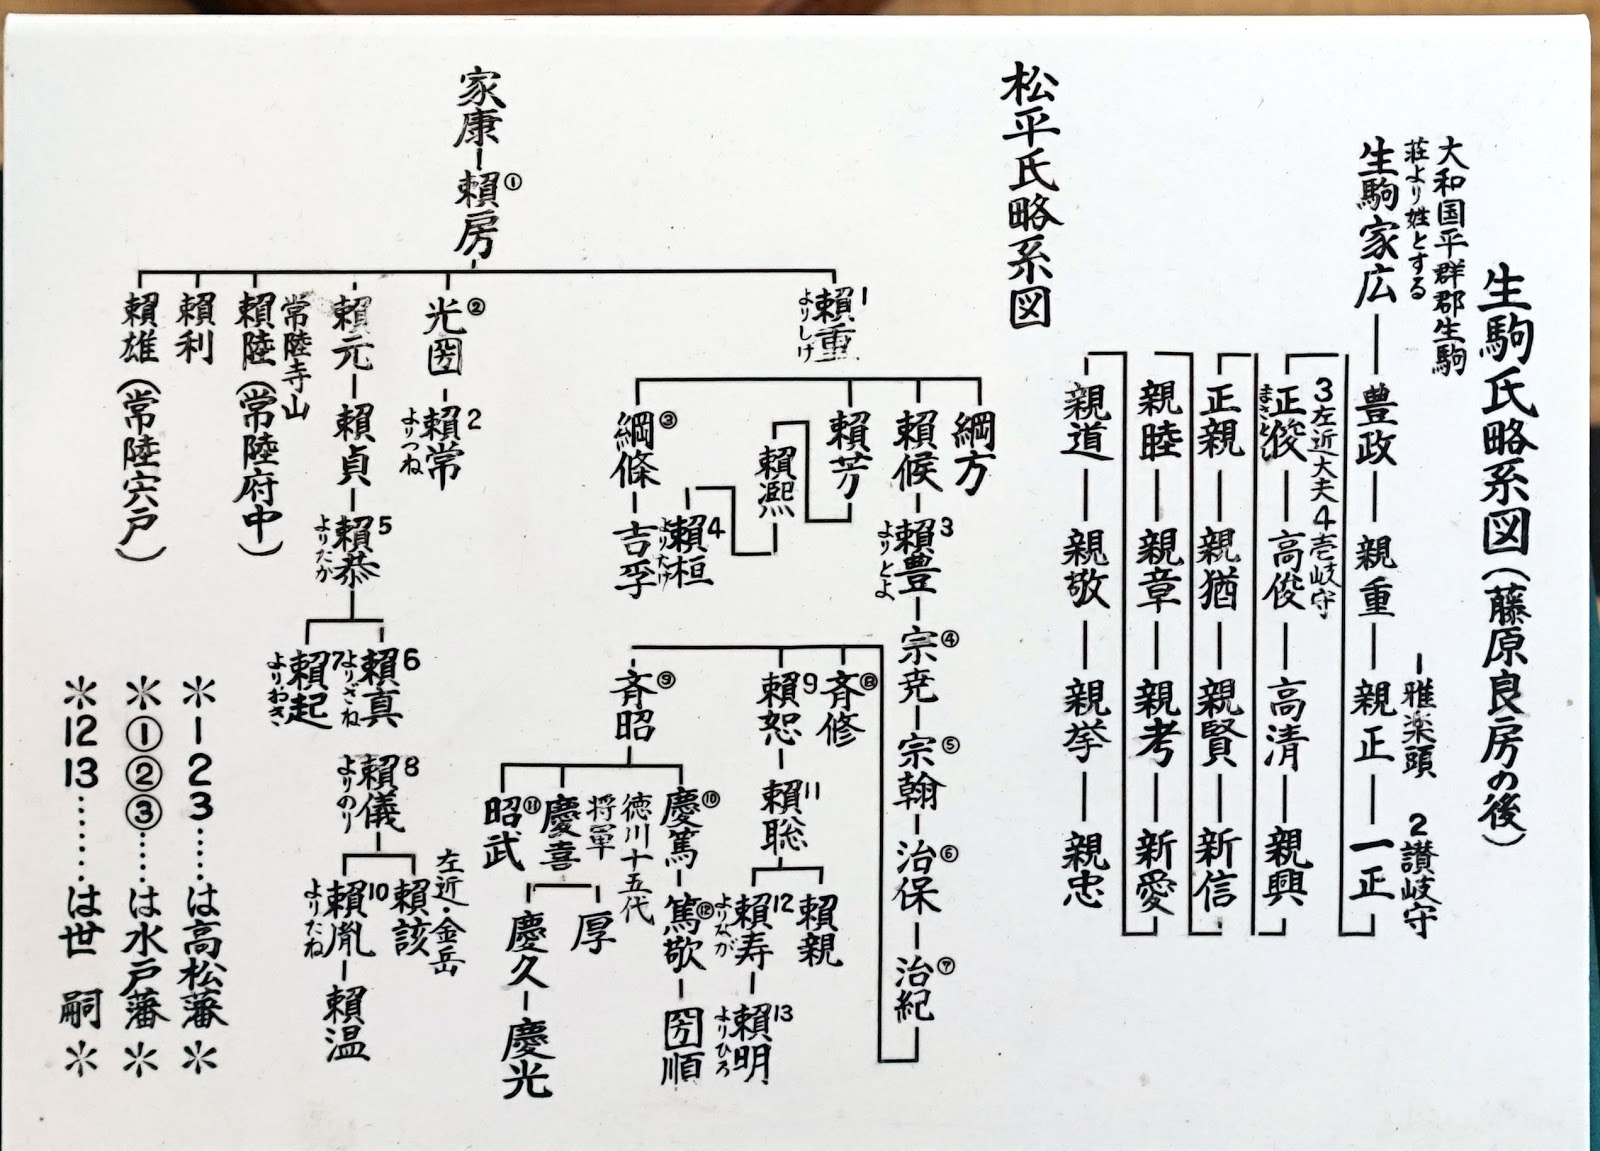 生駒氏略系図(藤原良房の後)
大和国平群郡生駒
荘より姓とする
生駒家広
豊政
親重
1雅楽頭
親正
2讃岐守
一正
3左近大夫
正俊
まさとし
4壱岐守
高俊
高清
親興
正親
親猶
親賢
新信
親睦
親章
親考
新愛
親道
親敬
親挙
親忠
松平氏略系図
家康
頼房①
頼重1
よりしげ
光圀②
頼元
頼陸(常陸府中)
常陸寺山
頼利
頼雄(常陸宍戸)
綱方
頼候
頼豊3
よりとよ
宗尭④
宗翰⑤
治保⑥
治紀⑦
頼芳
頼熙
頼桓4
よりたけ
綱條③
吉孚
斉修⑧
頼恕9
頼聡11
頼親
頼寿12
よりなが
頼明13
よりひろ
斉昭⑨
慶篤⑩
篤敬⑫
圀順
徳川十五代
将軍
慶喜
厚
慶久
慶光
昭武⑪
頼常2
よりつね
頼貞
頼恭5
よりたか
頼真6
よりざね
頼起7
よりおき
頼儀8
よりのり
左近・金岳
頼該
頼胤10
よりたね
頼温
*123……は高松藩*
*①②③……は水戸藩*
*1213……は世嗣*